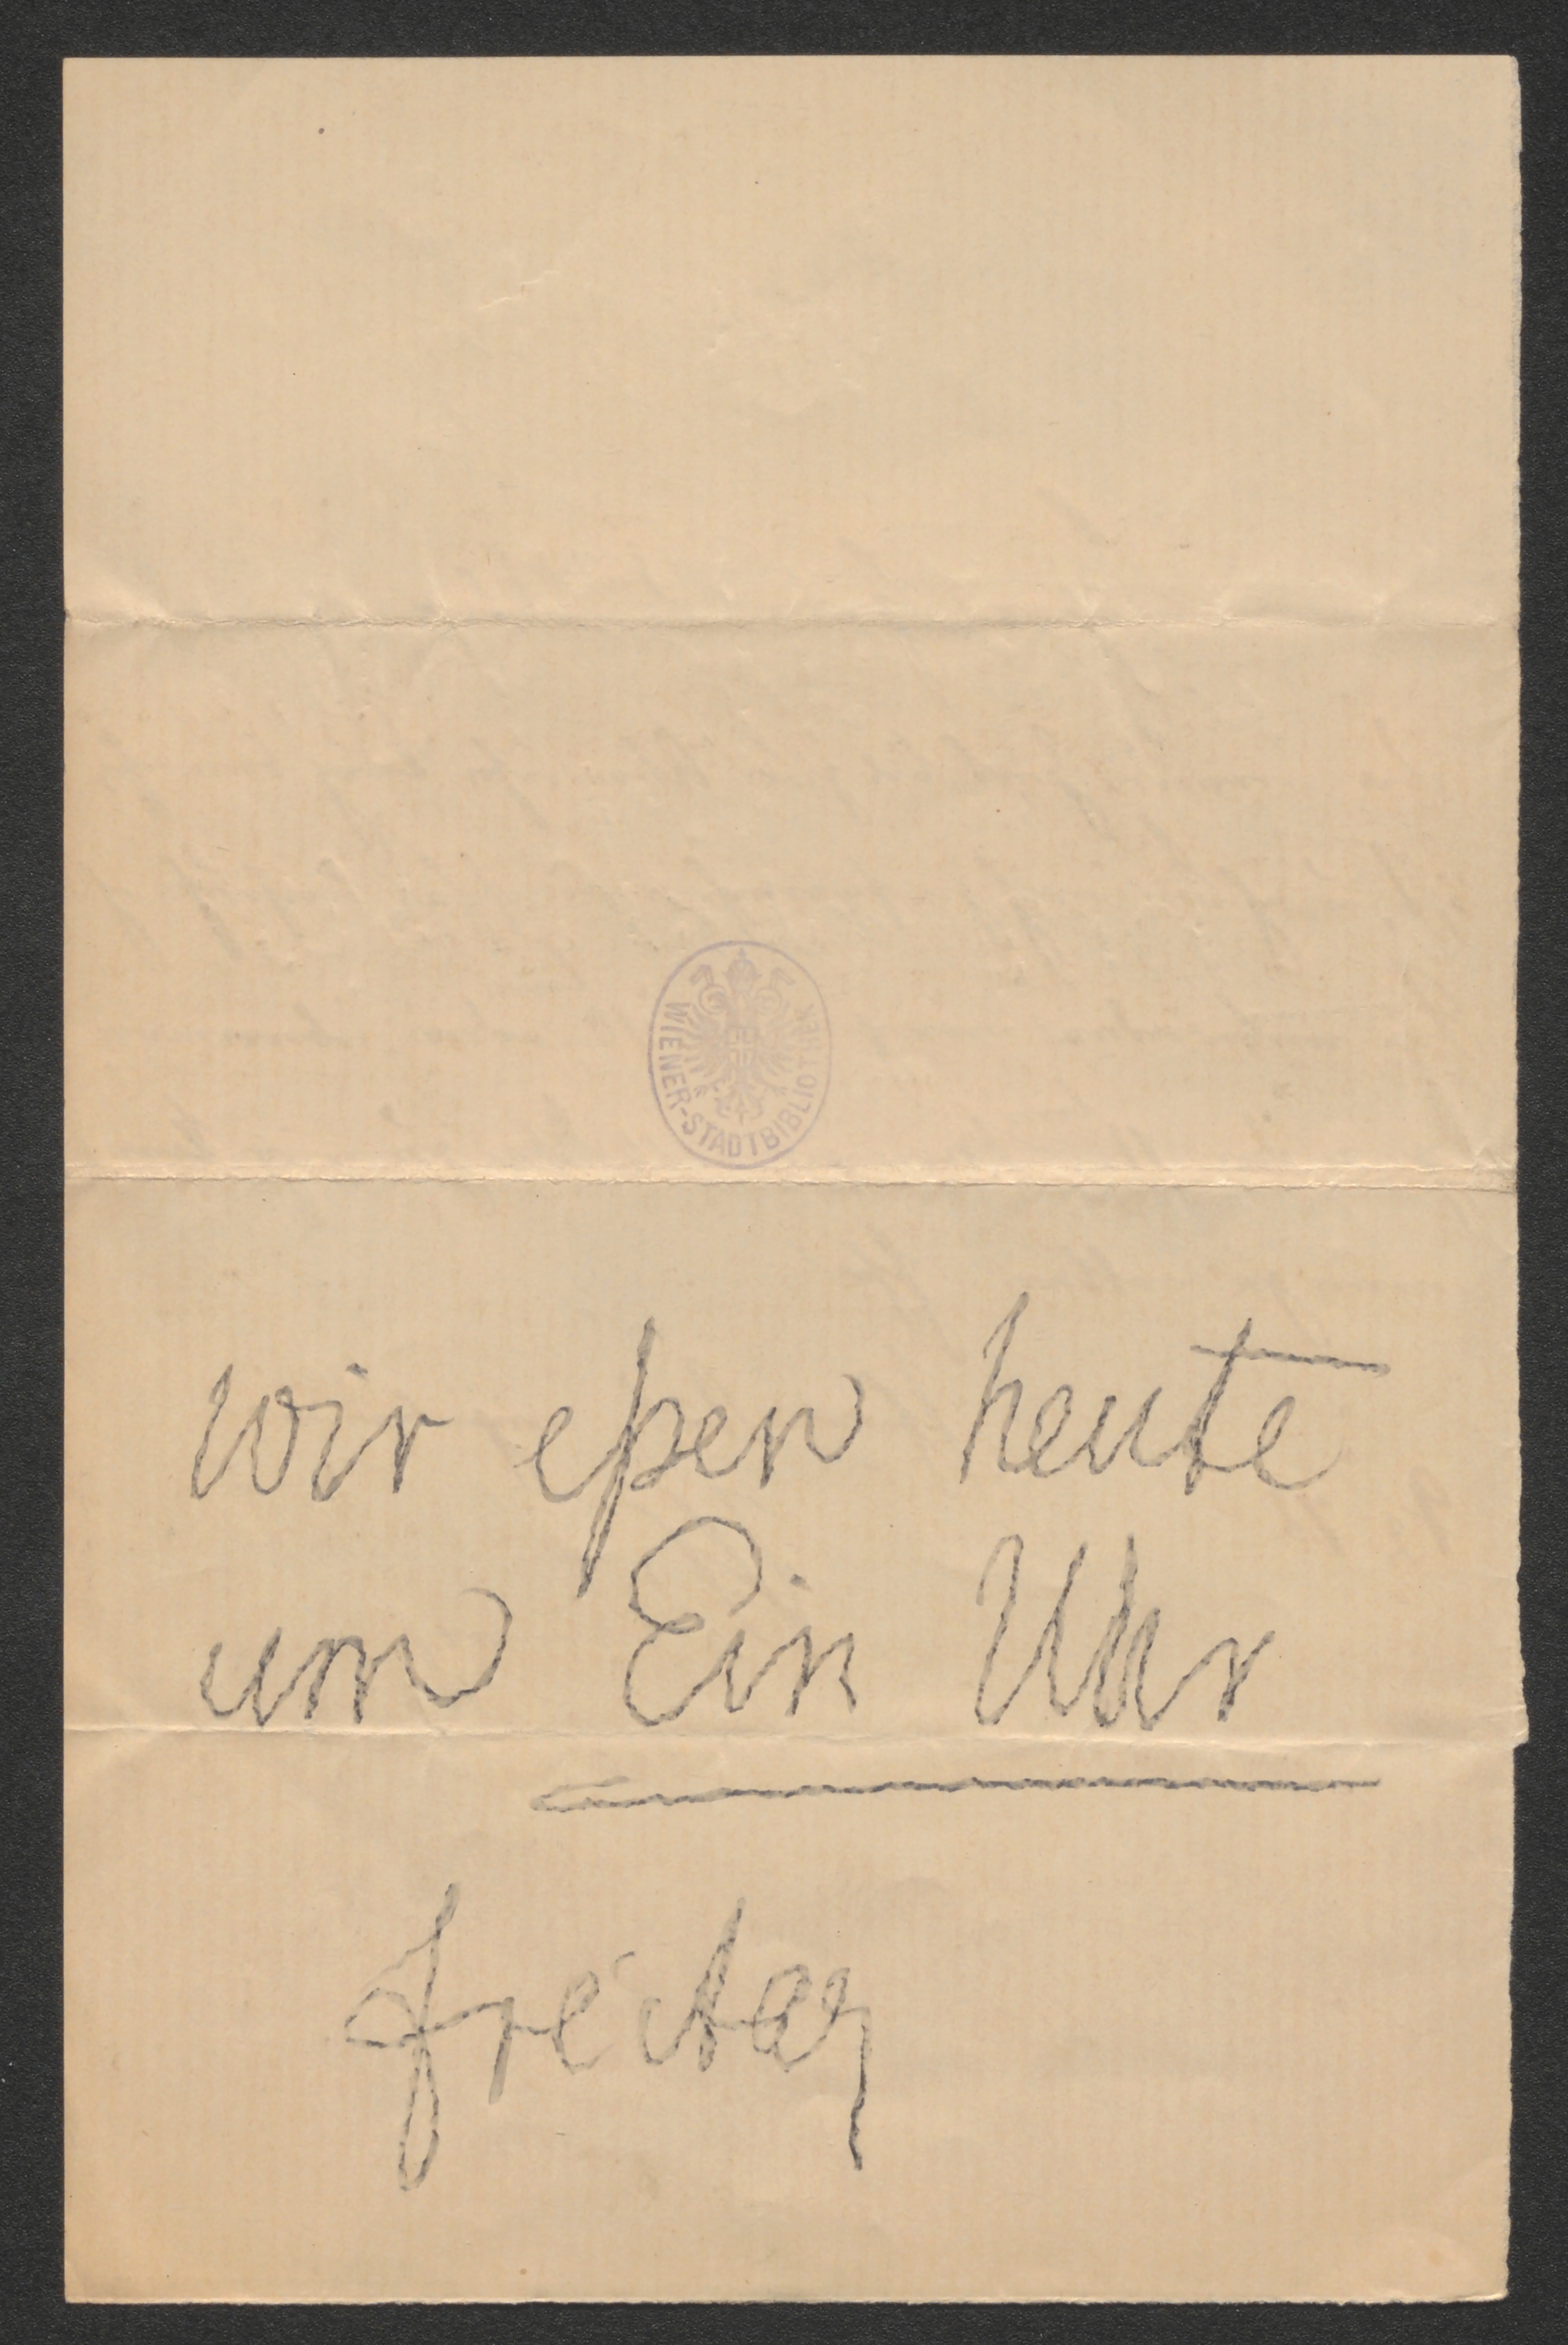 WIENER-STADTBIBLIOTHEK
Wir eßen heute
um Ein Uhr
Freitag